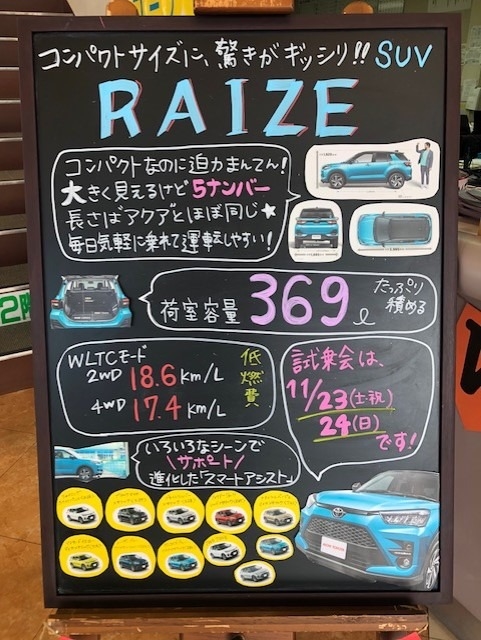 コンパクトサイズに、驚きがギッシリ!! SUV
RAIZE
コンパクトなのに迫力まんてん!
大きく見えるけど5ナンバー
長さはアクアとほぼ同じ★
毎日気軽に乗れて運転しやすい!
荷室容量 369ℓ
たっぷり
積める
WLTCモード
2WD 18.6 km/L
4WD 17.4 km/L
低燃費
試乗会は、
11/23(土・祝)
24(日)
です!
いろいろなシーンで
\サポート/
進化した「スマートアシスト」
2階